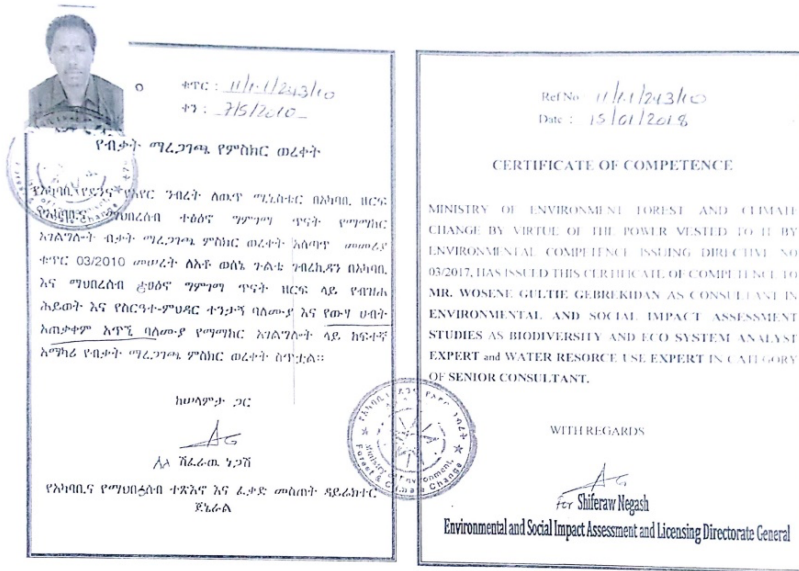 ቁጥር : 11/1-1/243/10
ቀን : 7/5/2010
የብቃት ማረጋገጫ የምስክር ወረቀት
የአካባቢ የደንና የአየር ንብረት ለዉጥ ሚኒስቴር በአካባቢ ዘርፍ
የአካባቢና ማህበረሰብ ተፅዕኖ ግምገማ ጥናት የማማከር
አገልግሎት ብቃት ማረጋገጫ ምስክር ወረቀት አሰጣጥ መመሪያ
ቁጥር 03/2010 መሠረት ለአቶ ወሰኔ ጉልቴ ገብረኪዳን በአካባቢ
እና ማህበረሰብ ተፅዕኖ ግምገማ ጥናት ዘርፍ ላይ የብዝሐ
ሕይወት እና የስርዓተ-ምህዳር ተንታኝ ባለሙያ እና የውሃ ሀብት
አጠቃቀም አጥኚ ባለሙያ የማማከር አገልግሎት ላይ ከፍተኛ
አማካሪ የብቃት ማረጋገጫ ምስክር ወረቀት ሰጥቷል።
ከሠላምታ ጋር
ሽፈራዉ ነጋሽ
የአካባቢና የማህበረሰብ ተጽእኖ እና ፈቃድ መስጠት ዳይሬክተር
ጀኔራል
Ref No 11/1-1/243/10
Date : 15/01/2018
CERTIFICATE OF COMPETENCE
MINISTRY OF ENVIRONMENT FOREST AND CLIMATE
CHANGE BY VIRTUE OF THE POWER VESTED TO IT BY
ENVIRONMENTAL COMPETENCE ISSUING DIRECTIVE NO
03/2017, HAS ISSUED THIS CERTIFICATE OF COMPETENCE TO
MR. WOSENE GULTIE GEBREKIDAN AS CONSULTANT IN
ENVIRONMENTAL AND SOCIAL IMPACT ASSESSMENT
STUDIES AS BIODIVERSITY AND ECO SYSTEM ANALYST
EXPERT and WATER RESORCE USE EXPERT IN CATEGORY
OF SENIOR CONSULTANT.
WITH REGARDS
for Shiferaw Negash
Environmental and Social Impact Assessment and Licensing Directorate General
Ministry of Environment,
Forest & Climate Change